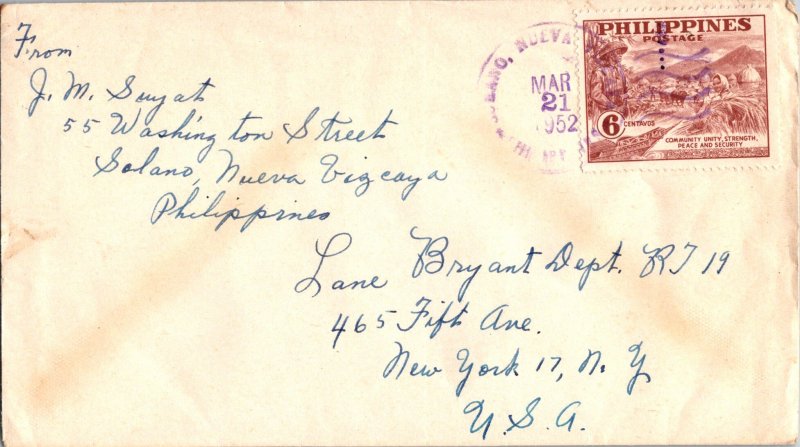 From
J. M. Suyat
55 Washington Street
Solano, Nueva Vizcaya
Philippines
SOLANO, NUEVA
MAR
21
1952
PHILIPPINES
POSTAGE
6 CENTAVOS
COMMUNITY UNITY, STRENGTH,
PEACE AND SECURITY
Lane Bryant Dept. RT 19
465 Fifth Ave.
New York 17, N. Y.
U. S. A.